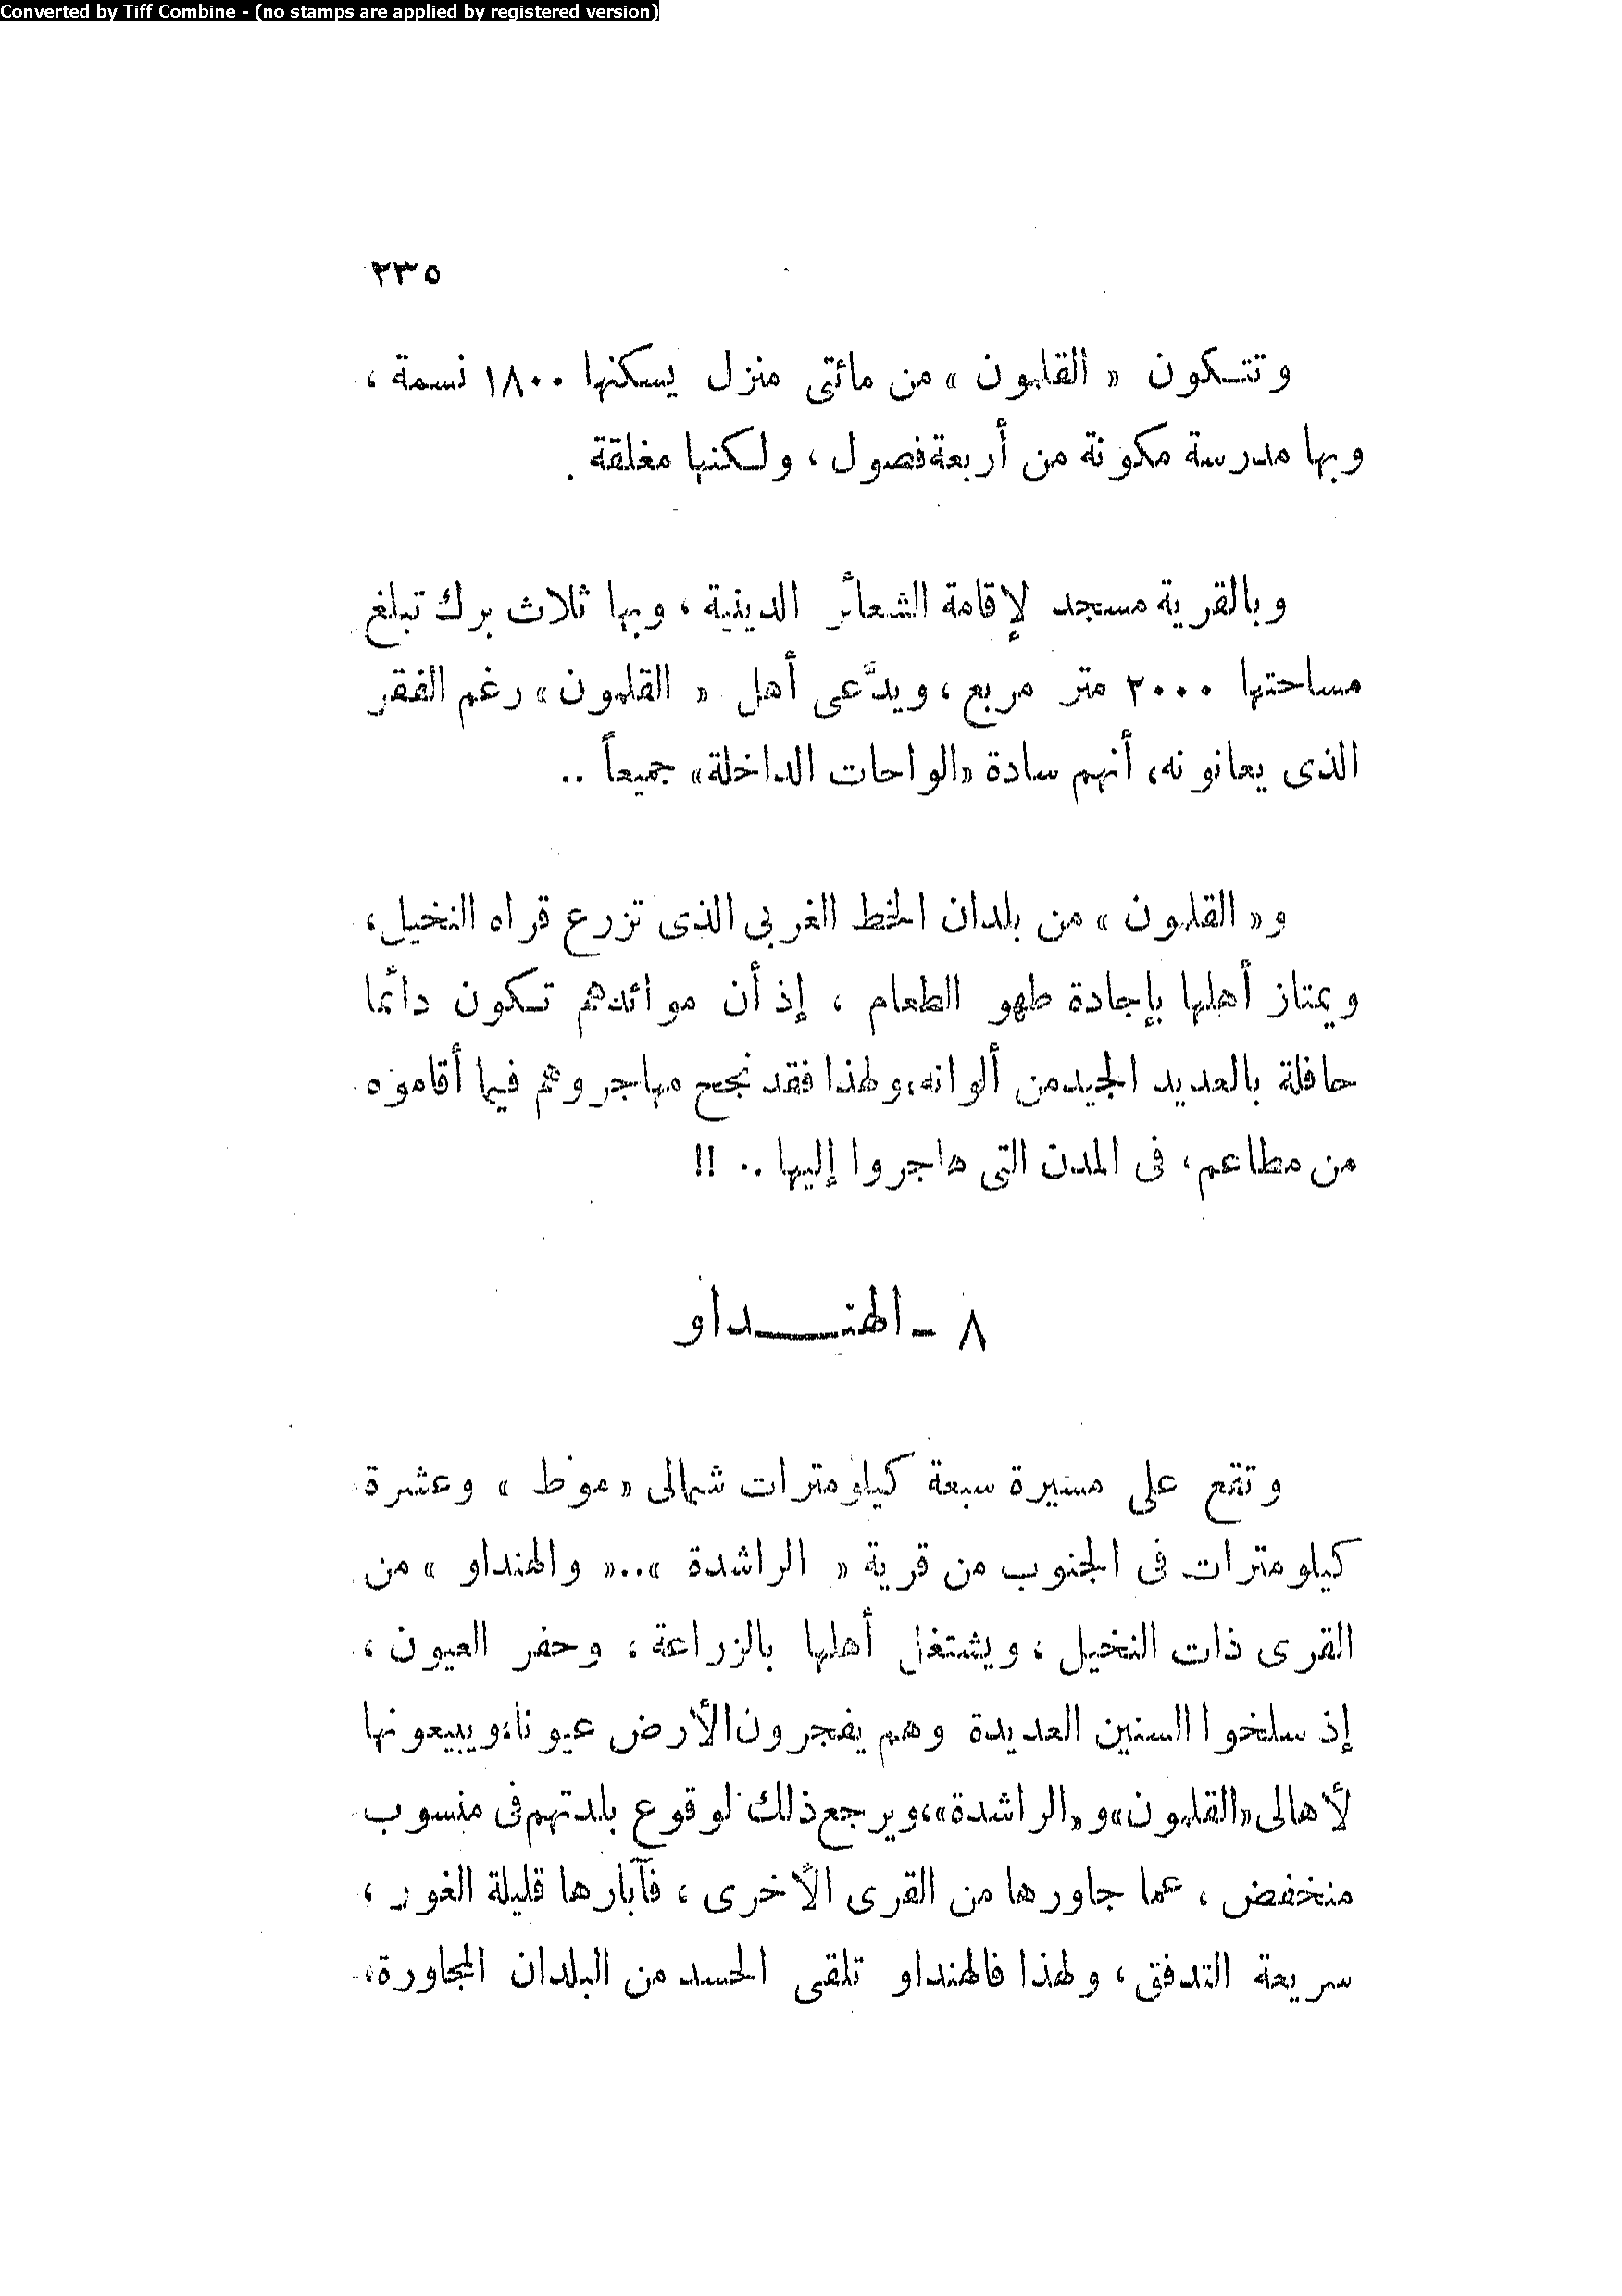 Converted by Tiff Combine - (no stamps are applied by registered version)
٢٣٥
وتتكون « القلمون » من مائتى منزل يسكنها ١٨٠٠ نسمة ،
وبها مدرسة مكونة من أربعة فصول ، ولكنها مغلقة .
وبالقرية مسجد لإقامة الشعائر الدينية ، وبها ثلاث برك تبلغ
مساحتها ٢٠٠٠ متر مربع ، ويدَّعى أهل « القلمون » رغم الفقر
الذى يعانونه، أنهم سادة «الواحات الداخلة» جميعاً ..
و« القلمون » من بلدان الخط الغربى الذى تزرع قراه النخيل ،
ويمتاز أهلها بإجادة طهو الطعام ، إذ أن موائدهم تكون دائما
حافلة بالعديد الجيد من ألوانه، ولهذا فقد نجح مهاجروهم فيما أقاموه
من مطاعم ، فى المدن التى هاجروا إليها .. !!
٨ - الهنداو
وتقع على مسيرة سبعة كيلومترات شمالى « موط » وعشرة
كيلومترات فى الجنوب من قرية « الراشدة »..« والهنداو » من
القرى ذات النخيل ، ويشتغل أهلها بالزراعة ، وحفر العيون ،
إذ سلخوا السنين العديدة وهم يفجرون الأرض عيونا، ويبيعونها
لأهالى «القلمون» و«الراشدة»، ويرجع ذلك لوقوع بلدتهم فى منسوب
منخفض ، عما جاورها من القرى الأخرى ، فآبارها قليلة الغور ،
سريعة التدفق ، ولهذا فالهنداو تلقى الحسد من البلدان المجاورة،